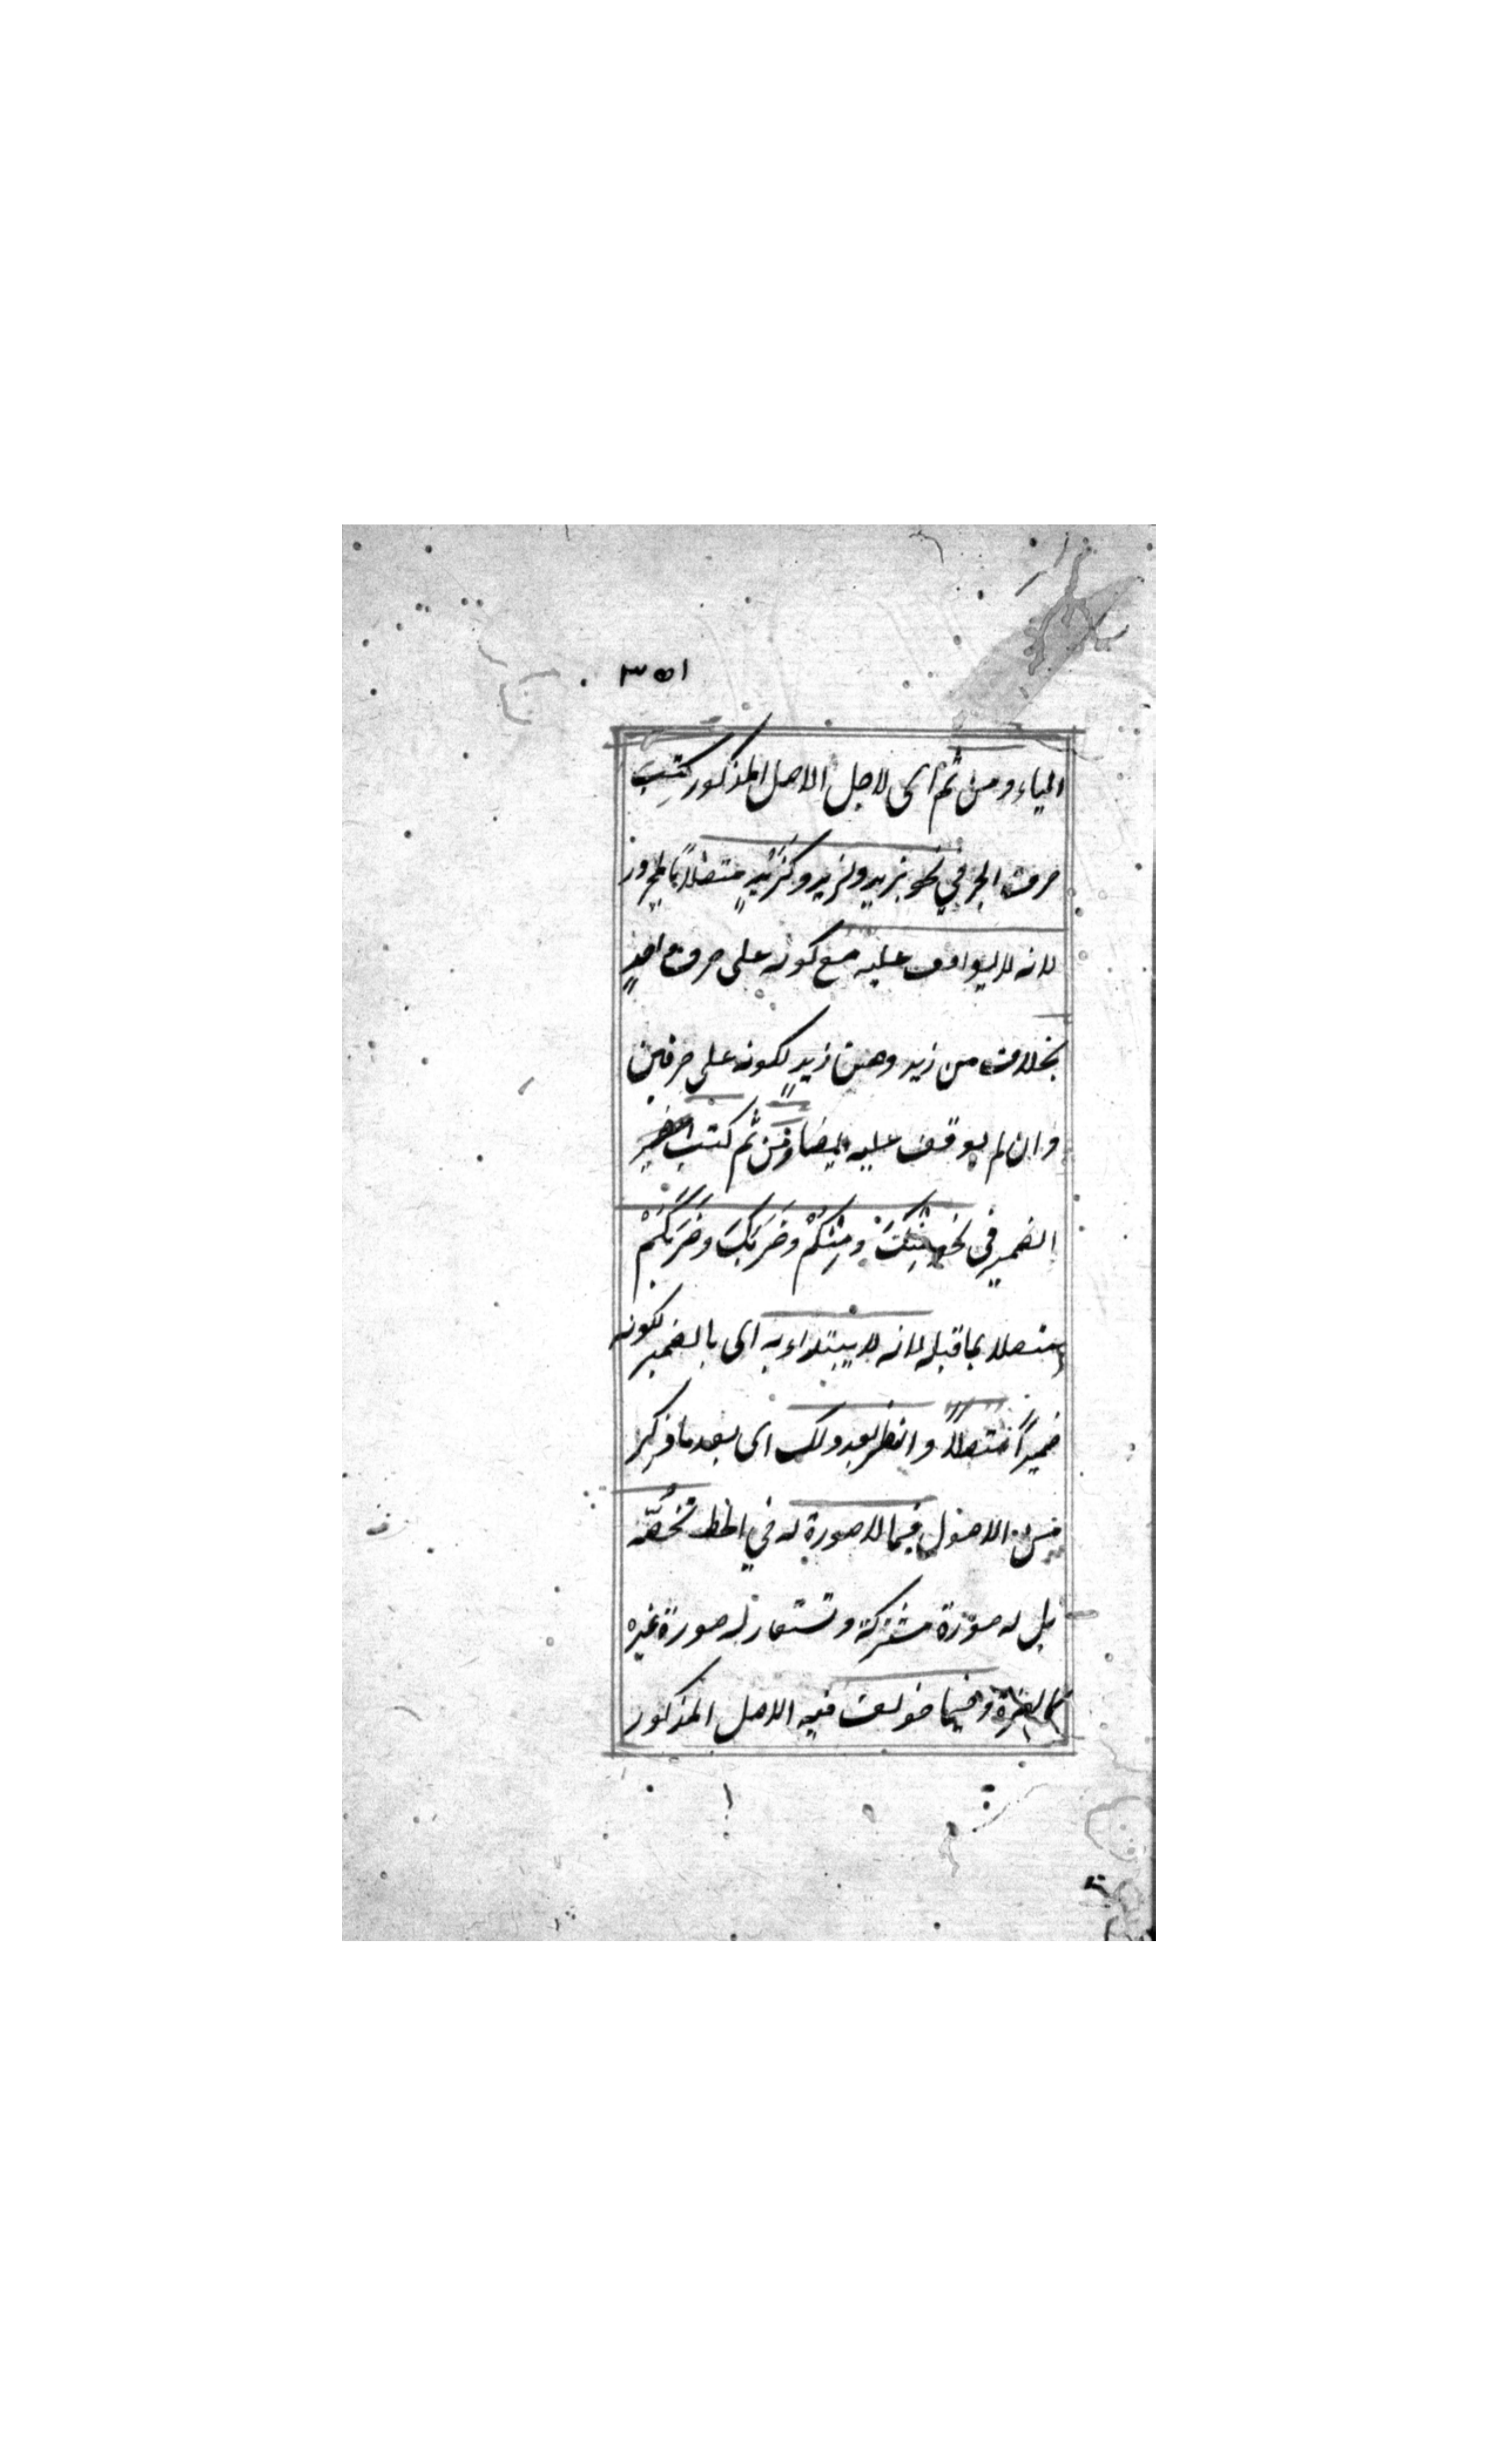 ٣٥١
الياء ومن ثم اى لاجل الاصل المذكور كتب
حرف الجر في نحو بزيد ولزيد وكزيد متصلا بالمجرور
لانه لا يوقف عليه مع كونه على حرف واحد
بخلاف من زيد وعن زيد لكونه على حرفين
وان لم يوقف عليه ايضا ومن ثم كتب
الضمير في نحو منك ومنكم وضربك وضربكم
متصلا بما قبله لانه لا يبتداء به اى بالضمير لكونه
ضميرا متصلا والنظر بعد ذلك اى بعد ما ذكر
من الاصول فيما لا صورة له في الخط تخصه
بل له صورة مشتركة وتستعار له صورة غيره
كالهمزة وفيما خولف فيه الاصل المذكور